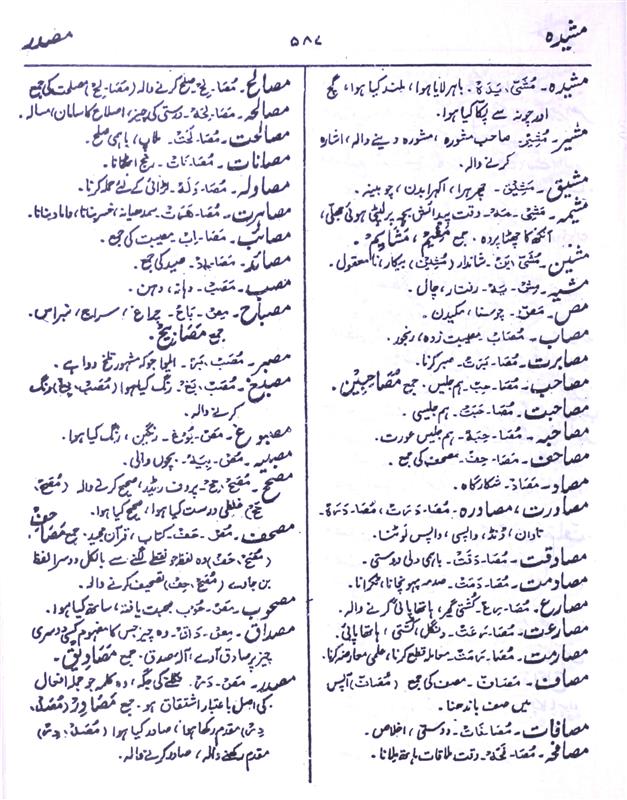 مشیدہ
۵۸۷
مصدر
مشیدہ۔ مُشَیَّ۔یَدَہْ۔ باہر لایا ہوا، بلند کیا ہوا، گچ
اور چونہ سے پکا کیا ہوا۔
مشیر۔ مُشِیْر۔ صاحب مشورہ، مشورہ دینے والا، اشارہ
کرنے والا۔
مشیق۔ مَشِیْق۔ چھرہرا، اکہرا بدن، چوبینہ۔
مشیمہ۔ مَشِیْ۔مَہ۔ وقت پیدائش بچہ پر لپٹی ہوئی جھلی،
آنکھ کا چھٹا پردہ۔ جمع مَشِیْم، مَشَایِم۔
مشین۔ مُشَیَّ۔ین۔ شاندار (مُشِیْن) بیکار، نامعقول۔
مشیہ۔ مِشْ۔یَہ۔ رفتار، چال۔
مص۔ مَصّ۔ چوسنا، مکیدن۔
مصاب۔ مُصَابْ۔ مصیبت زدہ، رنجور۔
مصابرت۔ مُصَا۔بَرَتْ۔ صبر کرنا۔
مصاحب۔ مُصَا۔حِبْ۔ ہم جلیس۔ جمع مُصَاحِبِیْن۔
مصاحبت۔ مُصَا۔حَبَتْ۔ ہم جلیسی۔
مصاحبہ۔ مُصَا۔حِبَہ۔ ہم جلیس عورت۔
مصاحف۔ مَصَا۔حِفْ۔ مصحف کی جمع۔
مصاد۔ مَصَادْ۔ شکار گاہ۔
مصادرت، مصادرہ۔ مُصَا۔دَرَتْ، مُصَا۔دَرَہْ۔
تاوان، ڈنڈ، واپسی، واپس لوٹنا۔
مصادقت۔ مُصَا۔دَقَتْ۔ باہمی دلی دوستی۔
مصادمت۔ مُصَا۔دَمَتْ۔ صدمہ پہونچانا، ٹکرانا۔
مصارع۔ مُصَا۔رِعْ۔ کشتی گیر، ہاتھا پائی کرنے والا۔
مصارعت۔ مُصَا۔رَعَتْ۔ دنگل، کشتی، ہاتھا پائی۔
مصارمت۔ مُصَا۔رَمَتْ۔ معاملہ قطع کرنا، علمی معارضہ کرنا۔
مصاف۔ مَصَافْ۔ مصف کی جمع (مُصَاف) آپس
میں صف باندھنا۔
مصافات۔ مُصَا۔فَاتْ۔ دوستی، اخلاص۔
مصافحہ۔ مُصَا۔فَحَہْ۔ وقت ملاقات ہاتھ ملانا۔
مصالح۔ مُصَا۔لِحْ۔ صلح کرنے والا (مَصَا۔لِحْ) مصلحت کی جمع
مصالحہ۔ مَصَا۔لَحَہْ۔ درستی کی چیز، اصلاح کا سامان، مسالہ۔
مصالحت۔ مُصَا۔لَحَتْ۔ ملاپ، باہمی صلح۔
مصانات۔ مُصَا۔نَاتْ۔ رنج اٹھانا۔
مصاولہ۔ مُصَا۔وَلَہْ۔ لڑائی کے لئے حملہ کرنا۔
مصاہرت۔ مُصَا۔ہَرَتْ۔ سمدھیانہ، خسر بنانا، داماد بنانا۔
مصائب۔ مَصَا۔اِبْ۔ مصیبت کی جمع۔
مصائد۔ مَصَا۔اِدْ۔ صید کی جمع۔
مصب۔ مَصَبّ۔ دہانہ، دہن۔
مصباح۔ مِصْ۔بَاحْ۔ چراغ، سراج، نبراس۔
جمع مَصَابِیْح۔
مصبر۔ مُصَبْ۔بَرْ۔ ایلوا جو کہ مشہور تلخ دوا ہے۔
مصبغ۔ مُصَبْ۔بَغْ۔ رنگ کیا ہوا (مُصَبْ۔بِغْ) رنگ
کرنے والا۔
مصبوغ۔ مَصْ۔بُوْغ۔ رنگین، رنگ کیا ہوا۔
مصبیہ۔ مُصْ۔بِیَہْ۔ بچوں والی۔
مصحح۔ مُصَحْ۔حِحْ۔ پروف ریڈر، صحیح کرنے والا (مُصَحْ۔
حَحْ) غلطی درست کیا ہوا، صحیح کیا ہوا۔
مصحف۔ مُصْ۔حَفْ۔ کتاب، قرآن مجید۔ جمع مَصَاحِفْ
(مُصَحْ۔حَفْ) وہ لفظ جو نقطے لگنے سے بالکل دوسرا لفظ
بن جاوے (مُصَحْ۔حِفْ) تصحیف کرنے والا۔
مصحوب۔ مَصْ۔حُوْب۔ صحبت یافتہ، ساتھ کیا ہوا۔
مصداق۔ مِصْ۔دَاقْ۔ وہ چیز جس کا مفہوم کسی دوسری
چیز پر صادق آوے، آلہ صدق۔ جمع مَصَادِیْق۔
مصدر۔ مَصْ۔دَرْ۔ نکلنے کی جگہ، وہ کلمہ جو جملہ افعال
کی اصل باعتبار اشتقاق ہو۔ جمع مَصَادِرْ (مُصَدْ۔
دَرْ) مقدم رکھا ہوا، صادر کیا ہوا (مُصَدْ۔دِرْ)
مقدم رکھنے والا، صادر کرنے والا۔